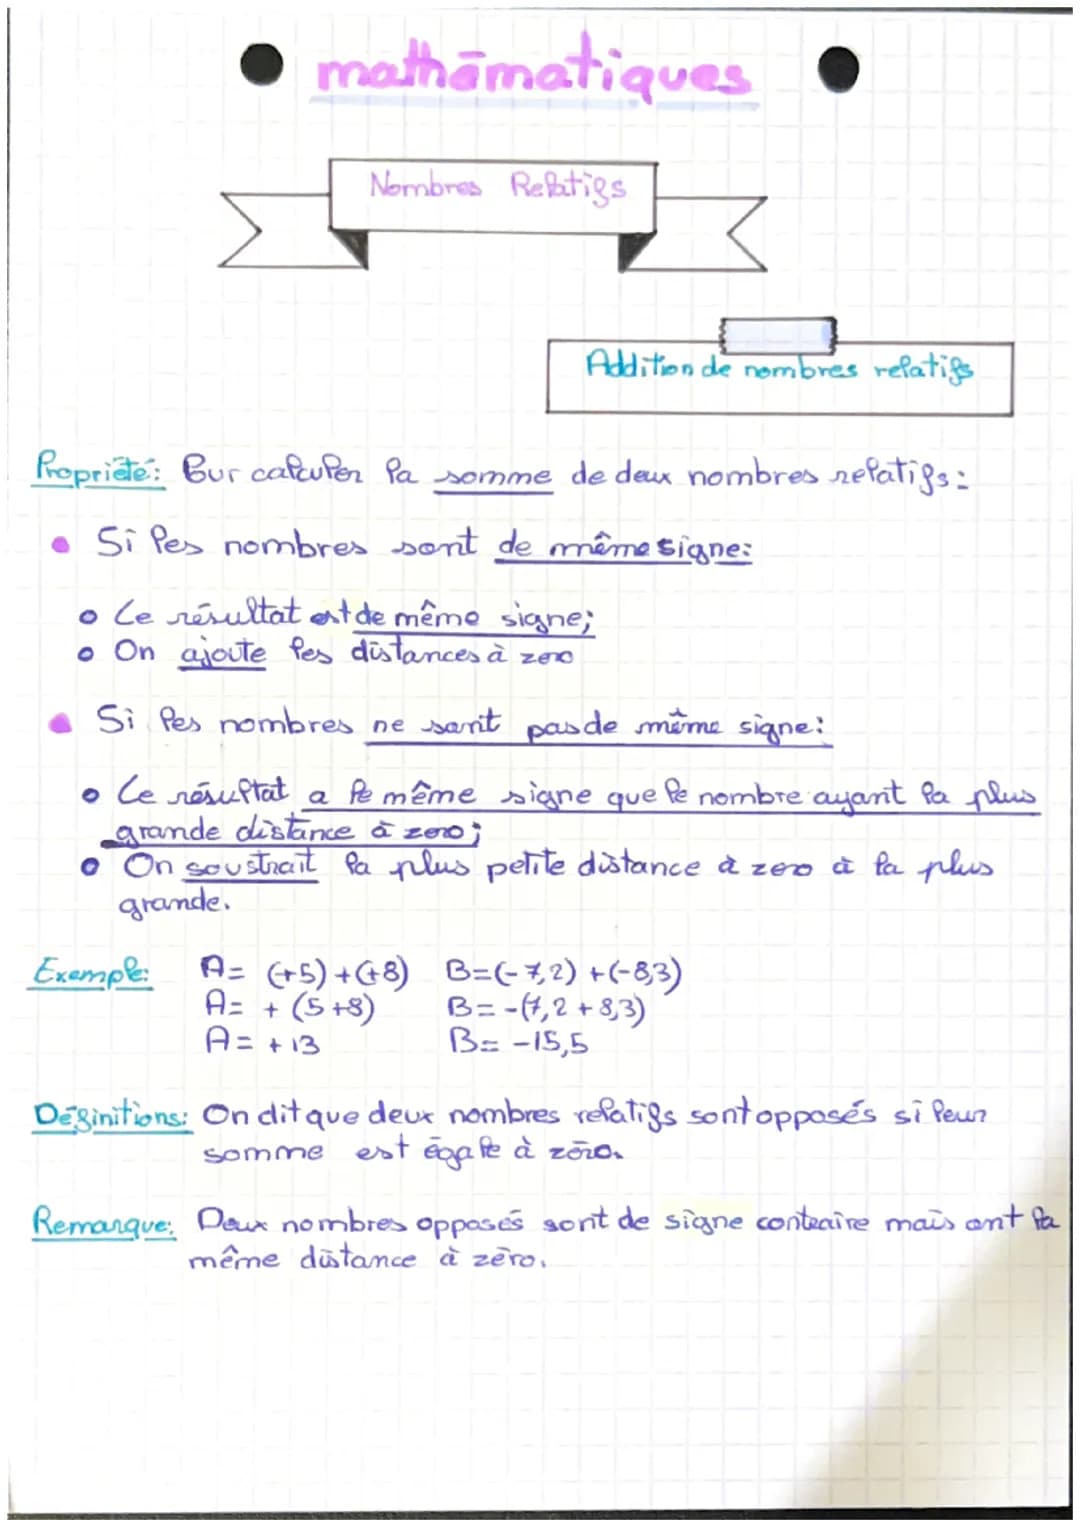 mathēmatiques
Nombres Relatifs
Addition de nombres relatifs
Propriété: Pour calculer la somme de deux nombres relatifs:
Si les nombres sont de même signe:
Le résultat est de même signe;
On ajoute les distances à zero
Si les nombres ne sont pas de même signe:
Le résultat a le même signe que le nombre ayant la plus
grande distance à zero;
On soustrait la plus petite distance à zero à la plus
grande.
Exemple: A= (+5)+(+8) B=(-7,2)+(-8,3)
A= + (5+8) B= -(7,2+8,3)
A= +13 B= -15,5
Définitions: On dit que deux nombres relatifs sont opposés si leur
somme est égale à zéro.
Remarque: Deux nombres opposés sont de signe contraire mais ont la
même distance à zéro.